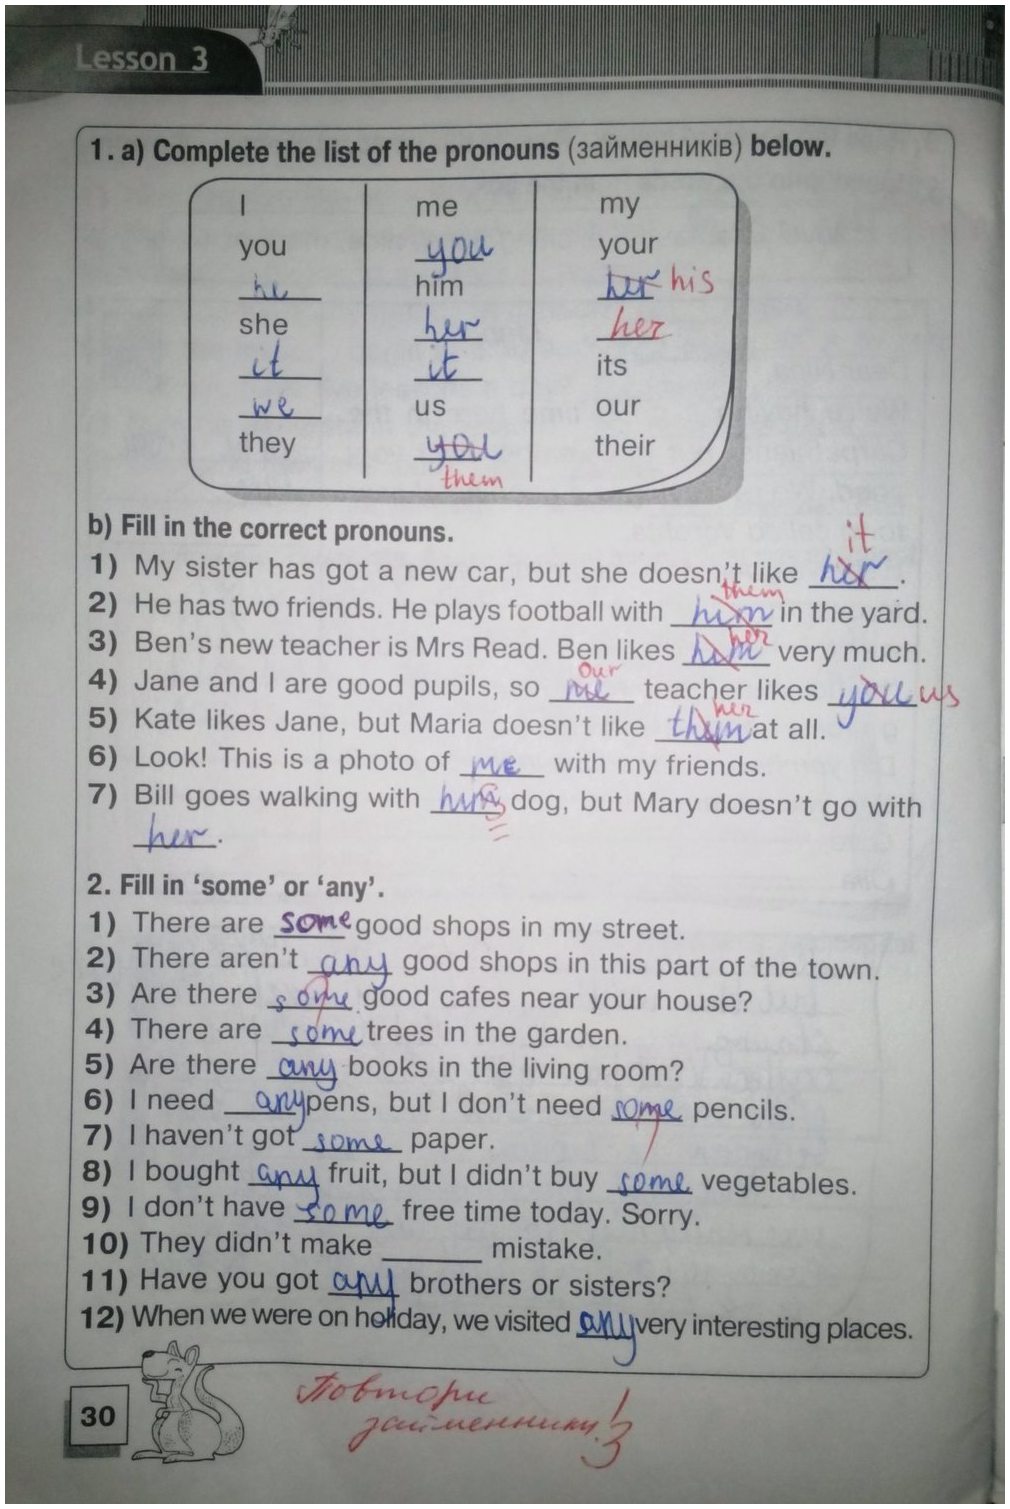 Lesson 3
1. a) Complete the list of the pronouns (займенників) below.
I me my
you you your
he him her his
she her her
it it its
we us our
they you their
them
b) Fill in the correct pronouns.
it
1) My sister has got a new car, but she doesn't like her.
them
2) He has two friends. He plays football with him in the yard.
her
3) Ben's new teacher is Mrs Read. Ben likes him very much.
our
4) Jane and I are good pupils, so me teacher likes you us
her
5) Kate likes Jane, but Maria doesn't like them at all.
6) Look! This is a photo of me with my friends.
7) Bill goes walking with his dog, but Mary doesn't go with
her.
2. Fill in 'some' or 'any'.
1) There are some good shops in my street.
2) There aren't any good shops in this part of the town.
3) Are there some good cafes near your house?
4) There are some trees in the garden.
5) Are there any books in the living room?
6) I need any pens, but I don't need some pencils.
7) I haven't got some paper.
8) I bought any fruit, but I didn't buy some vegetables.
9) I don't have some free time today. Sorry.
10) They didn't make ______ mistake.
11) Have you got any brothers or sisters?
12) When we were on holiday, we visited any very interesting places.
Повтори
займенники!
30